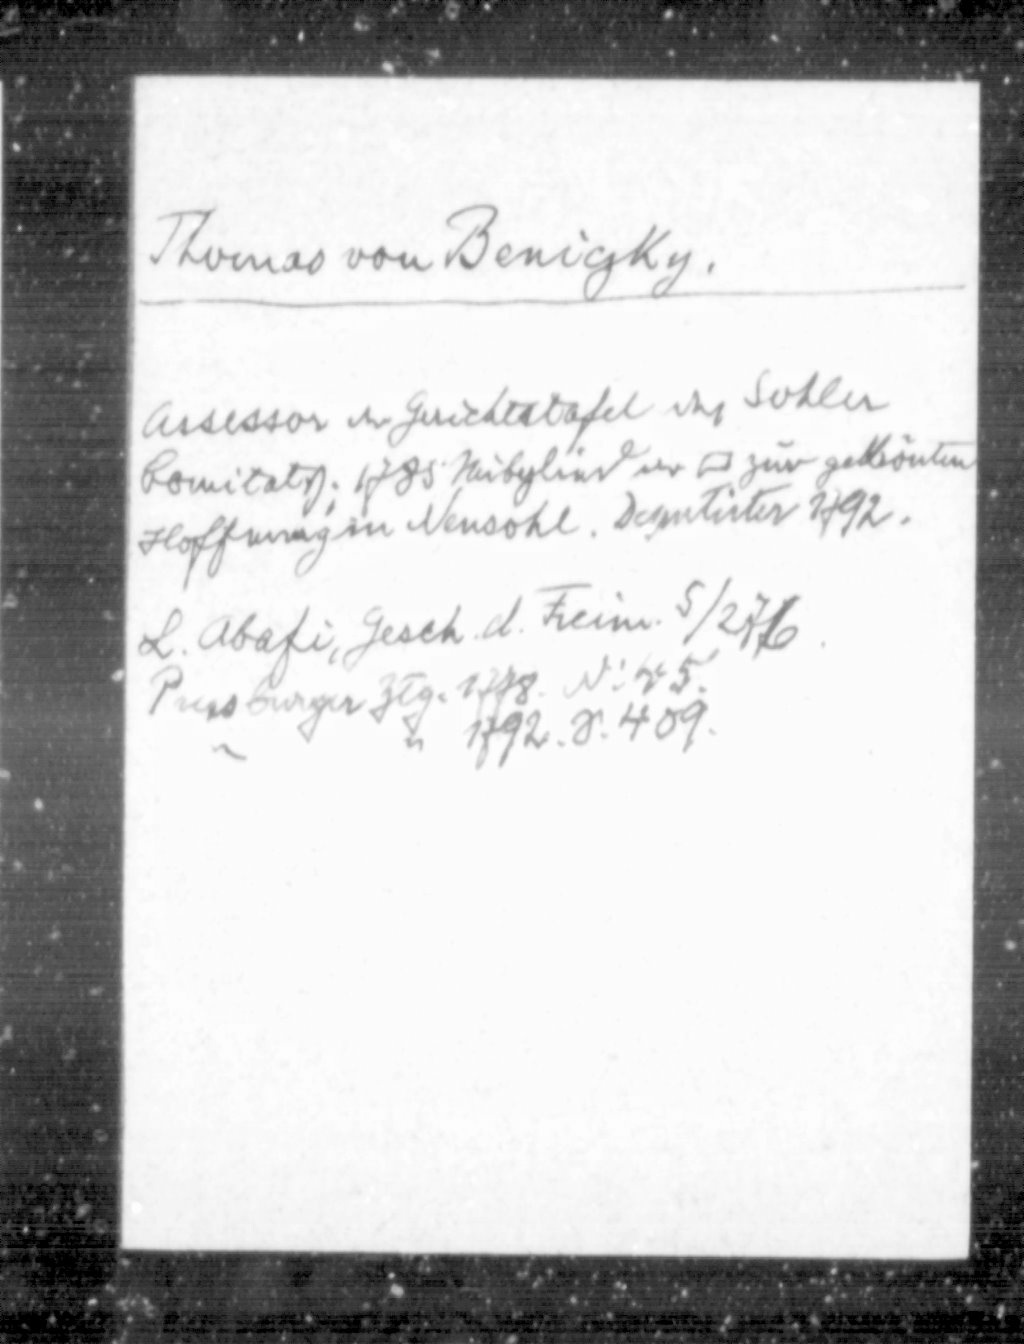 Thomas von Beniczky.
Assessor der Gerichtstafel des Sohler
Comitats; 1785 Mitglied der □ zur gekrönten
Hoffnung in Neusohl. Deputirter 1792.
L. Abafi, Gesch. d. Freim. 5/276.
Pressburger Ztg. 1778. N: 45.
" " 1792. S. 409.